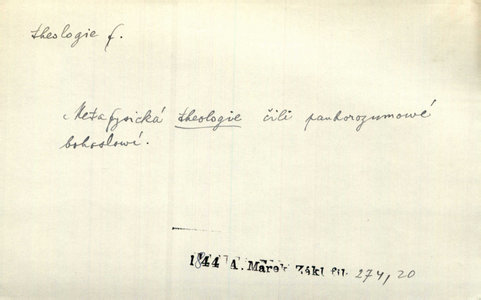 theologie f.
Metafysická theologie čili pauhorozumowé
bohoslowí.
1844 A. Marek Zákl fil 274, 20